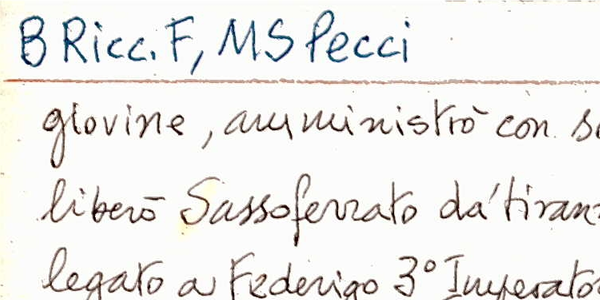 B Ricc. F, MS Pecci
giovine, amministrò con
liberò Sassoferrato da'
legato a Federigo 3°